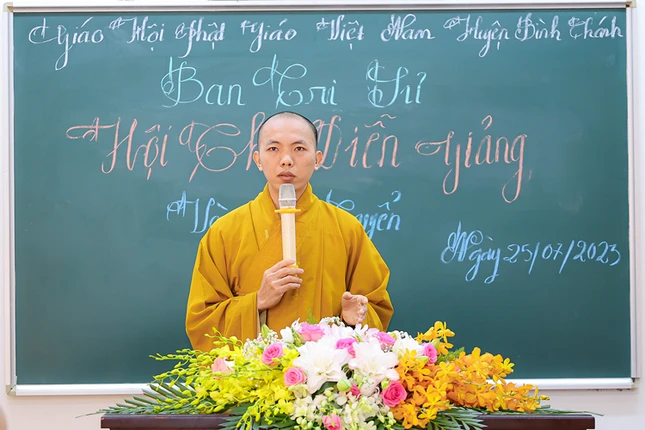 Giáo Hội Phật Giáo Việt Nam Huyện Bình Chánh
Ban Trị Sự
Hội Thi Diễn Giảng
Ngày 25/07/2023